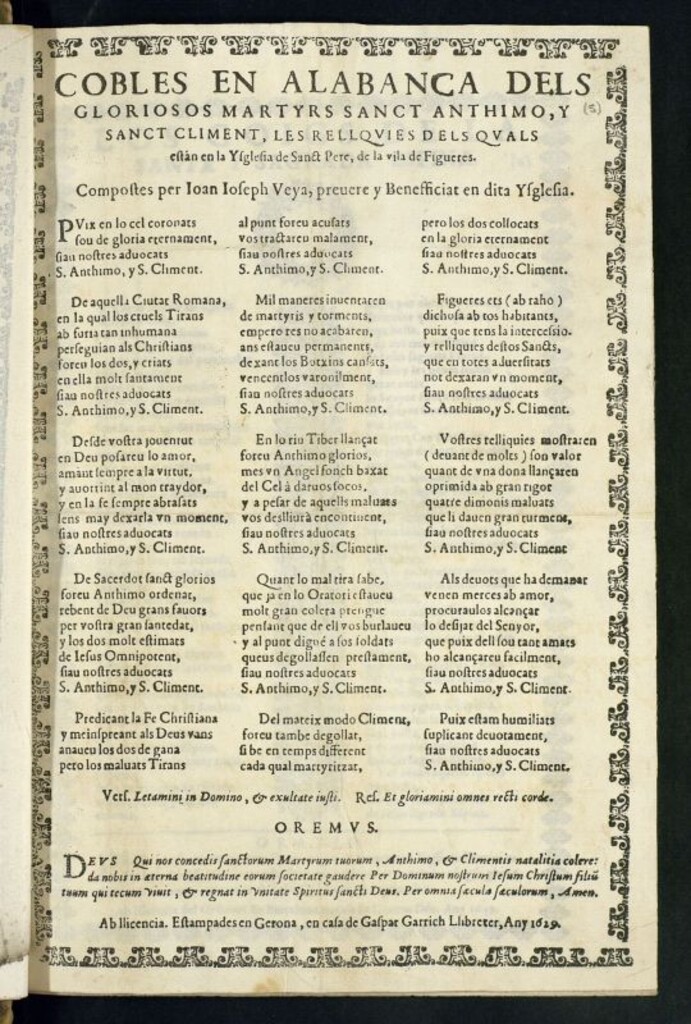 COBLES EN ALABANCA DELS
GLORIOSOS MARTYRS SANCT ANTHIMO, Y
(5)
SANCT CLIMENT, LES RELLQVIES DELS QVALS
eſtàn en la Yſgleſia de Sanct Pere, de la vila de Figueres.
Compoſtes per Ioan Ioſeph Veya, preuere y Beneficiat en dita Yſgleſia.
PVix en lo cel coronats
ſou de gloria eternament,
ſiau noſtres aduocats
S. Anthimo, y S. Climent.
De aquella Ciutat Romana,
en la qual los cruels Tirans
ab furia tan inhumana
perſeguian als Chriſtians
foreu los dos, y criats
en ella molt ſantament
ſiau noſtres aduocats
S. Anthimo, y S. Climent.
Deſde voſtra jouentut
en Deu poſareu lo amor,
amànt ſempre a la virtut,
y auorrint al mon traydor,
y en la fe ſempre abraſats
ſens may dexarla vn moment,
ſiau noſtres aduocats
S. Anthimo, y S. Climent.
De Sacerdot ſanct glorios
foreu Anthimo ordenat,
rebent de Deu grans fauors
per voſtra gran ſantedat,
y los dos molt eſtimats
de Ieſus Omnipotent,
ſiau noſtres aduocats
S. Anthimo, y S. Climent.
Predicant la Fe Chriſtiana
y meinſpreant als Deus vans
anaueu los dos de gana
pero los maluats Tirans
al punt foreu acuſats
vos tractareu malament,
ſiau noſtres aduocats
S. Anthimo, y S. Climent.
Mil maneres inuentaren
de martyris y torments,
empero res no acabaren,
ans eſtaueu permanents,
dexant los Botxins canſats,
vencentlos varonilment,
ſiau noſtres aduocats
S. Anthimo, y S. Climent.
En lo riu Tiber llançat
foreu Anthimo glorios,
mes vn Angel fonch baxat
del Cel à daruos ſocos,
y a peſar de aquells maluats
vos deslliurà encontinent,
ſiau noſtres aduocats
S. Anthimo, y S. Climent.
Quant lo mal tira ſabe,
que ja en lo Oratori eſtaueu
molt gran colera prengue
penſant que de ell vos burlaueu
y al punt digué a ſos ſoldats
queus degollaſſen preſtament,
ſiau noſtres aduocats
S. Anthimo, y S. Climent.
Del mateix modo Climent,
foreu tambe degollat,
ſi be en temps different
cada qual martyritzat,
pero los dos collocats
en la gloria eternament
ſiau noſtres aduocats
S. Anthimo, y S. Climent.
Figueres ets (ab raho)
dichoſa ab tos habitants,
puix que tens la interceſsio.
y relliquies deſtos Sancts,
que en totes aduerſitats
not dexaran vn moment,
ſiau noſtres aduocats
S. Anthimo, y S. Climent.
Voſtres relliquies moſtraren
(deuant de molts) ſon valor
quant de vna dona llançaren
oprimida ab gran rigor
quatre dimonis maluats
que li dauen gran turment,
ſiau noſtres aduocats
S. Anthimo, y S. Climent
Als deuots que ha demanar
venen merces ab amor,
procuraulos alcançar
lo deſitjat del Senyor,
que puix dell ſou tant amats
ho alcançareu facilment,
ſiau noſtres aduocats
S. Anthimo, y S. Climent.
Puix eſtam humiliats
ſuplicant deuotament,
ſiau noſtres aduocats
S. Anthimo, y S. Climent.
Verſ. Letamini in Domino, & exultate iuſti. Reſ. Et gloriamini omnes recti corde.
OREMVS.
DEVS Qui nos concedis ſanctorum Martyrum tuorum, Anthimo, & Climentis natalitia colere:
da nobis in æterna beatitudine eorum ſocietate gaudere Per Dominum noſtrum Ieſum Chriſtum filiũ
tuum qui tecum viuit, & regnat in vnitate Spiritus ſancti Deus. Per omnia ſæcula ſæculorum, Amen.
Ab llicencia. Eſtampades en Gerona, en caſa de Gaſpar Garrich Llibreter, Any 1629.